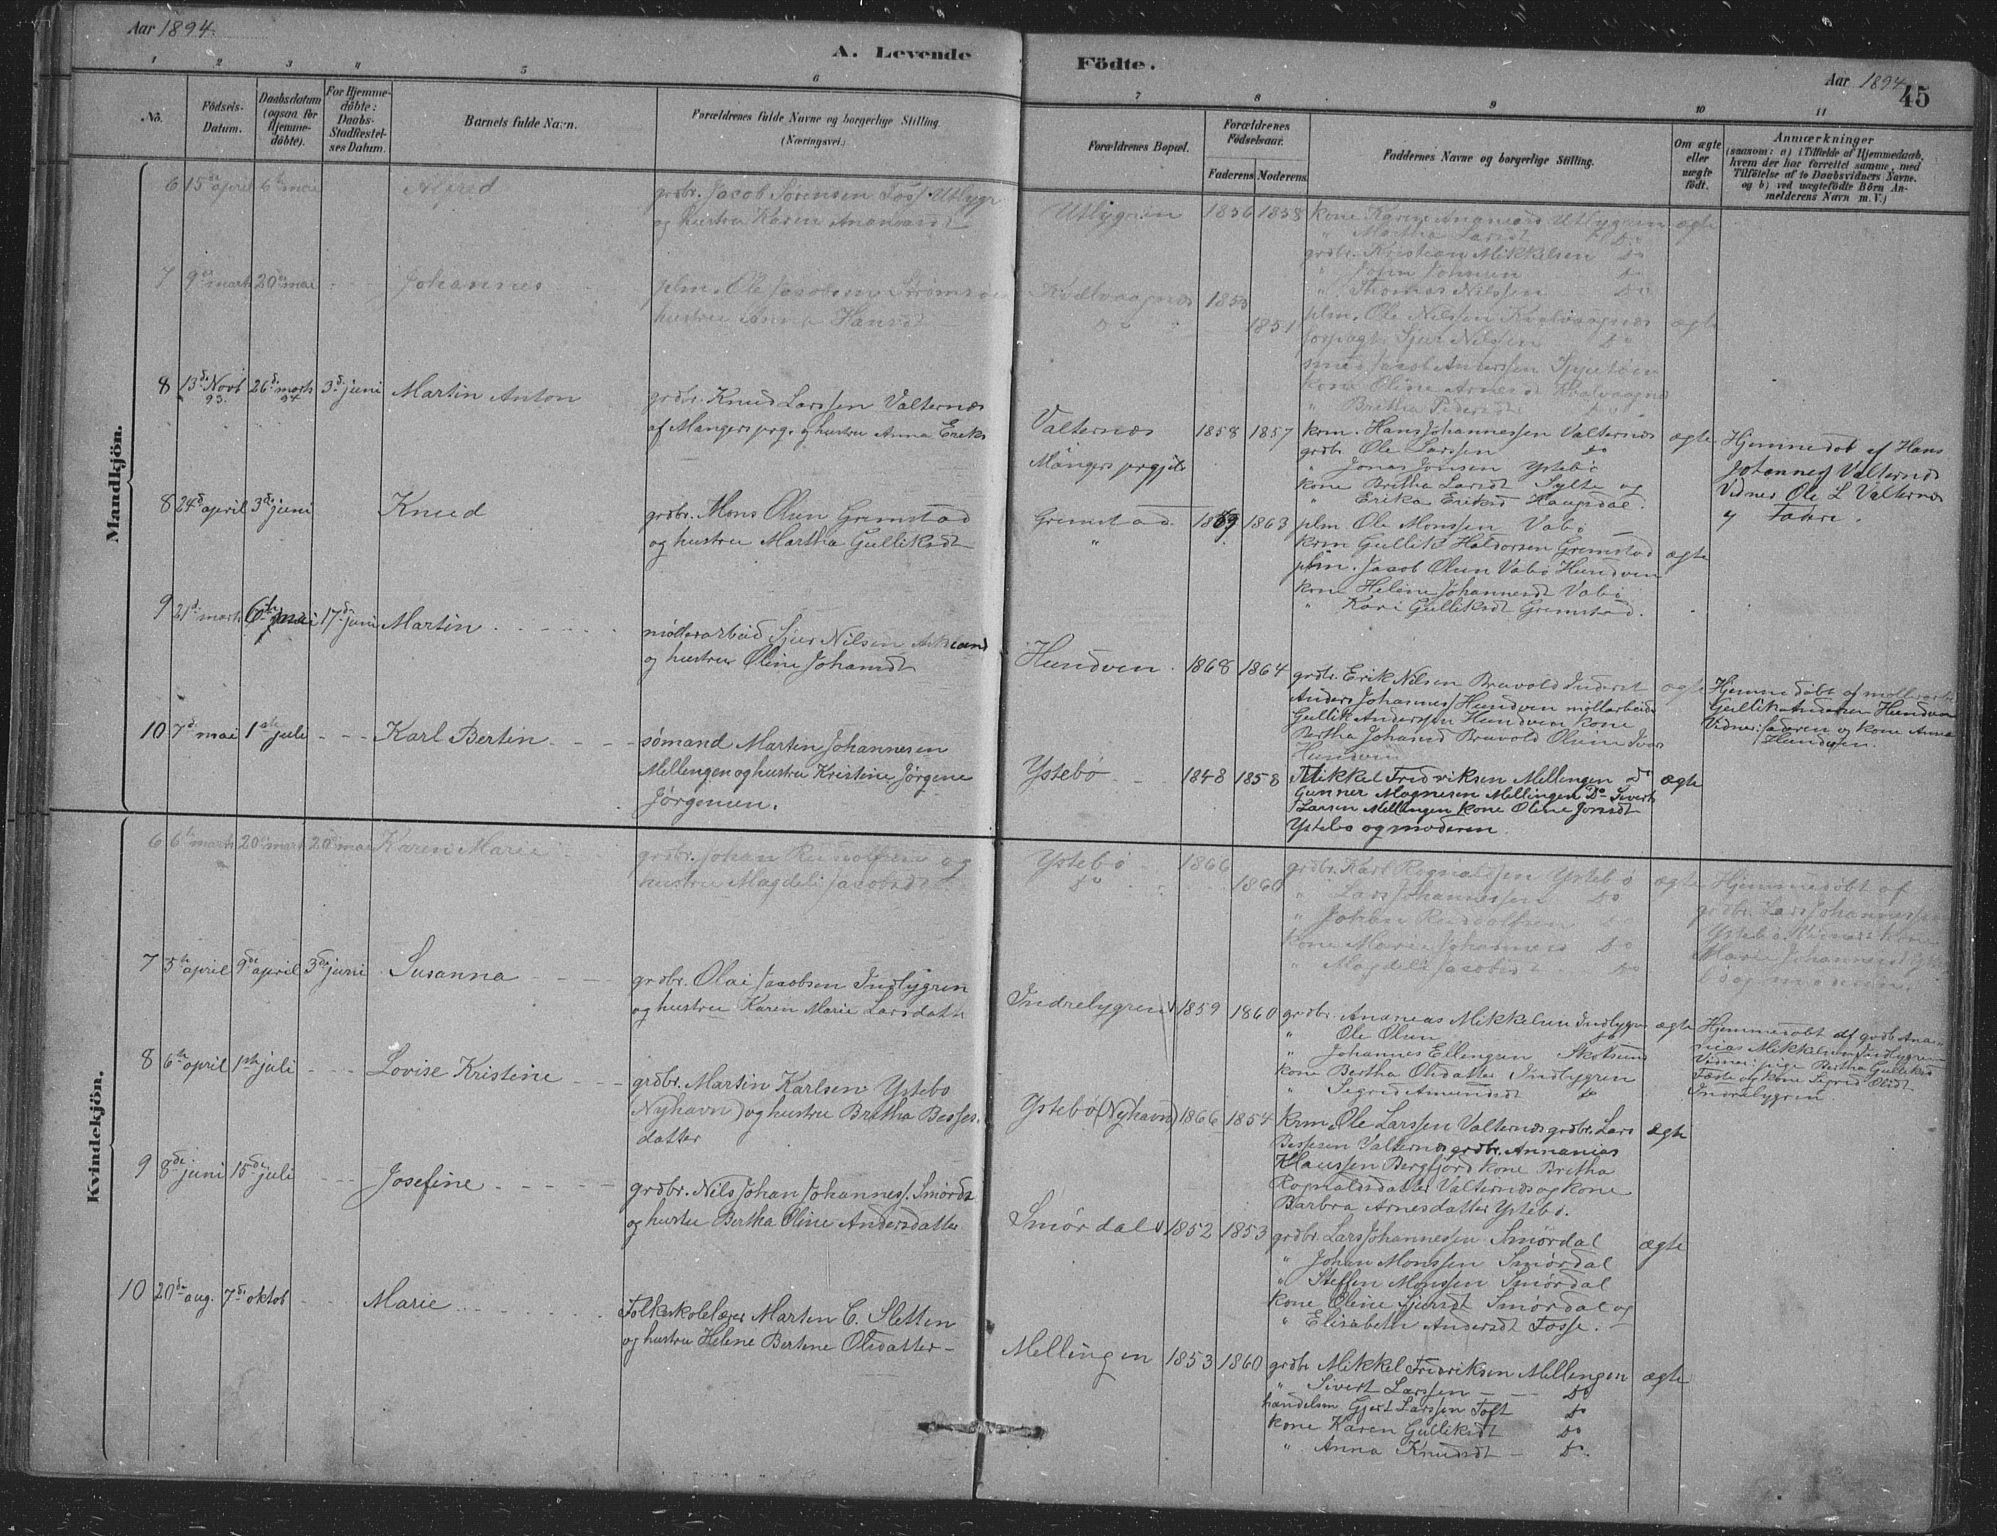 Aar 1894.
A. Levende
Födte.
Aar 1894
45
1 2 3 4 5 6
7 8 9 10 11
No.
Födsels-
Datum.
Daabsdatum
(ogsaa for
Hjemme-
döbte).
For Hjemme-
döbte:
Daabs-
Stadfæstel-
ses Datum.
Barnets fulde Navn.
Forældrenes fulde Navne og borgerlige Stilling
(Næringsvei.)
Forældrenes Bopæl.
Forældrenes
Födselsaar.
Faderens. Moderens.
Faddernes Navne og borgerlige Stilling.
Om ægte
eller
uægte
födt.
Anmærkninger
(saasom: a) i Tilfælde af Hjemmedaab,
hvem der har forrettet samme, med
Tilföielse af to Daabsvidners Navne.
og b) ved uægtefödte Börn An-
melderens Navn m. V.)
Mandkjön.
6 15de april 6te mai Alfred
grdbr. Jacob Sørensen Utbygr
og hustru Karen
Utbygren 1856 1858
kone Karen Utbygren ægte
" Martha Larsdt Do
grdbr. Kristian Mikkelsen Do
" John Johnsen Do
" Thomas Nilssen Do
7 9de marts 20de mai Johannes
plm. Ole Jacobsen
hustru Anna Hansdt
Kvalvaagnes 1853
Do 1851
plm. Ole Nilssen Kvalvaagnes ægte
Sjur Nilssen Do
Jacob Anderssen
kone Oline Arnesdt Kvalvaagnes
" Britha Pedersdt Do
8 13de Novb 93. 26de marts 94 3de juni Martin Anton
grdbr. Knud Larssen Valternæs
af Mangers prg. og hustru Anna Eriks
Valternæs 1858 1857
Mangers prgjeld
krm. Hans Johannessen Valternæs ægte
grdbr. Ole Larssen Do
" Jonas Jonsen Ystebö
kone Britha Larsdt Sylte og
" Erika Eriksd Haugsdal.
Hjemmedöb af Hans
Johannes Valternæs
Vidner Ole L Valternæs
8 24de april 3de juni Knud
grdbr. Mons Olsen Gremstad
og hustru Martha Gulliksdt
Gremstad. 1863
"
plm. Ole Monssen Vabö
krm Gullik Haldorsen Gremstad ægte
plm. Jacob Olsen Vabö Hundven
kone Helene Johannesdt Vabö
" Kari Gulliksdt Gremstad.
9 21de marts 6te mai 17de juni Martin
møllerarbeid Sjur Nilsen
og hustru Oline Johansdt
Hundven. 1868 1864
grdbr. Erik Nilsen Bruvold ægte
Anders Johannes Hundven møllarbeid
Gullik Anderssen Hundven kone
Bertha Johansd Bruvold
Hundven
Hjemmedöbt af møllerarb
Gullik Andersen Hundven
Vidner: faderen og kone Anna
Hundven.
10 7de mai 1ste juli Karl Bertin
sømand Martin Johannesen
Mellengen og hustru Kristine Jörgene
Jörgensen.
Ystebö 1848 1858
Mikkel Fredriksen Mellengen ægte
Gunner Magnesen Mellingen Do Sivert
Larsen Mellengen kone Oline Jonsdt
Ystebø og moderen.
Kvindekjön.
6 6te marts 20de marts 20de mai Karen Marie
grdbr. Johan og
hustru Magdeli Jacobsdt
Ystebö 1866
Do 1860
grdbr. Karl Rognaldsen Ystebö ægte
" Lars Johannessen Do
" Johan
kone Marie Johannesd Do
" Magdeli Jacobsdt Do
Hjemmedöbt af
grdbr. Lars Johannessen
Ystebö. Vidner: kone
Marie Johannesd
7 5te april 9de april 3de juni Susanna
grdbr. Olai Jacobsen Indbygren
og hustru Karen Marie Larsdatt
Indrebygren 1859 1860
grdbr. Ananias Mikkelsen Indbygr ægte
" Ole Olsen Do
" Johannes Ellengren Skotsund
kone Bertha Olsdatter Indbygren
" Segrid Amundsdt Do
Hjemmedöbt af grdb Ana-
nias Mikkelsen Indbygren
Vidner: pige Bertha Gulliksd
Fæste og kone Segrid Olsdt
Indrebygren
8 6te april 1ste juli Lovise Kristine
grdbr. Martin Karlsen Ystebø
(Nyhavn) og hustru Britha Besses-
datter
Ystebö (Nyhavn) 1866 1854
krm. Ole Larssen Valternæs grdbr. Lars ægte
Bessesen Valternæs grdbr. Annanias
Klaussen Bergfjord kone Britha
Rognaldsdatter Valternæs og kone
Barbra Arnesdatter Ystebø.
9 8de juni 15de juli Josefine
grdbr. Nils Johan Johannes. Smørd
og hustru Bertha Oline Andersdatter
Smördal 1852 1853
grdbr. Lars Johannessen Smördal ægte
" Johan Monssen Smørdal
" Steffen Monssen Smørdal
kone Oline Sjursdt Smørdal og
" Elisabeth Andersdt Fosse.
10 20de aug. 7de oktob Marie
Folkeskolelærer Marten C. Sletten
og hustru Helene Bertine Olsdatter
Mellingen 1853 1860
grdbr Mikkel Fredriksen Mellengen ægte
" Sivert Larssen Do
handelsm Gjert Larssen Toft Do
kone Karen Gulliksdt Do
" Anna Knudsdt Do